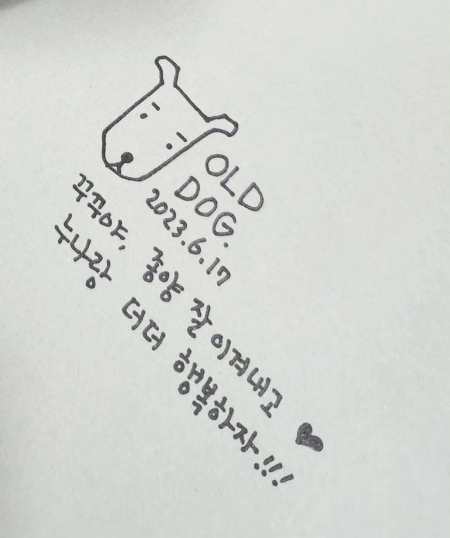 OLD
DOG.
2023.6.17
꾸꾸야, 종양 잘 이겨내고
누나랑 더더 행복하자!!!